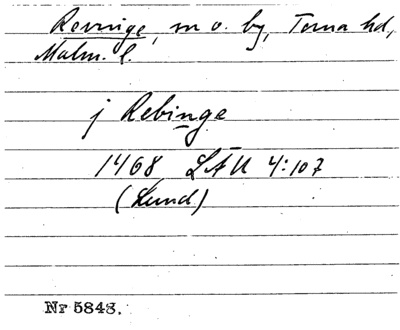 Revinge, m o. by, Torna hd,
Malm. l.
j Rebinge
1468 LÄU 4:107
(Lund)
Nr 5848.